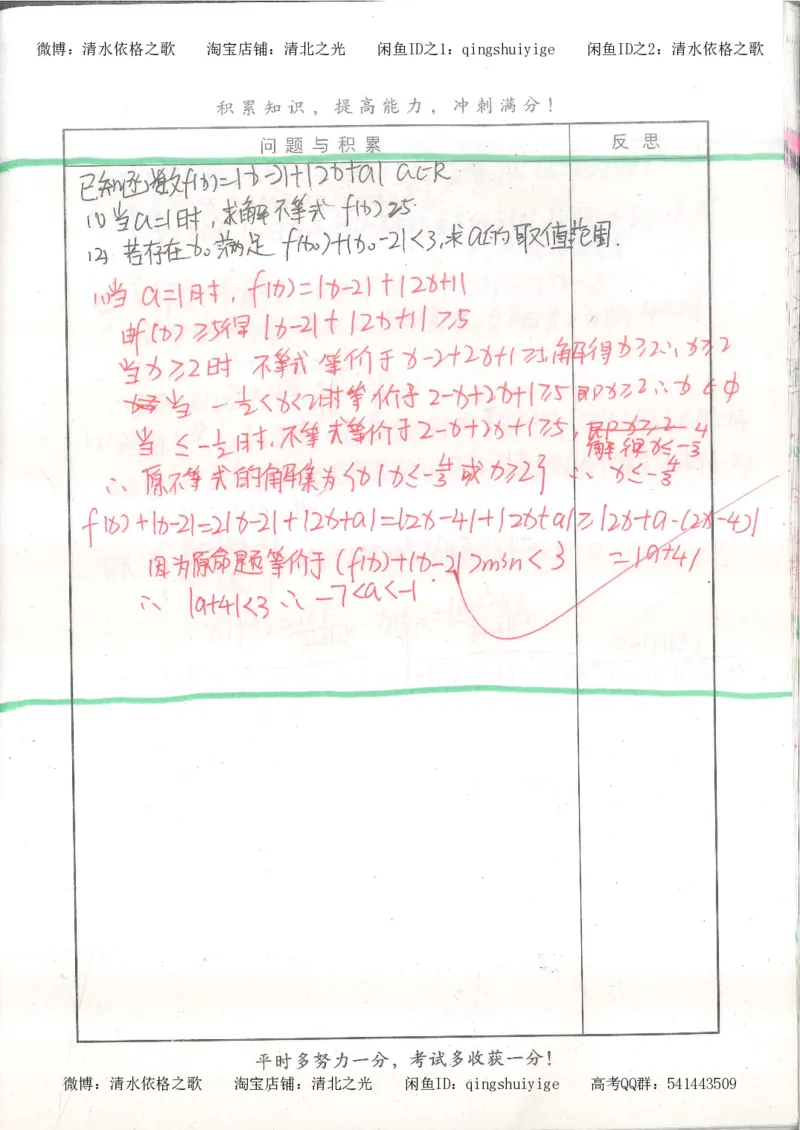 微博：清水依格之歌 淘宝店铺：清北之光 闲鱼ID之1：qingshuiyige 闲鱼ID之2：清水依格之歌
积累知识，提高能力，冲刺满分！
问题与积累 反思
已知函数f(x)=|x-2|+|2x+a| a∈R
(1)当a=1时,求解不等式 f(x)≥5
(2) 若存在x₀满足 f(x₀)+|x₀-2|<3,求a的取值范围.
(1)当 a=1时, f(x)=|x-2|+|2x+1|
由f(x)≥5得 |x-2|+|2x+1|≥5
当x≥2时 不等式等价于 x-2+2x+1≥5,解得x≥2∴x≥2
当 -1/2<x<2时等价于 2-x+2x+1≥5 即x≥2∴x∈ϕ
当 ≤-1/2时,不等式等价于2-x+2x+1≥5, 即x≥2
解得x≤-4/3
∴ 原不等式的解集为{x|x≤-4/3或x≥2} ∴ x≤-4/3
f(x)+|x-2|=2|x-2|+|2x+a|=|2x-4|+|2x+a|≥|2x+a-(2x-4)|
因为原命题等价于(f(x)+|x-2|)min<3 =|a+4|
∴ |a+4|<3 ∴ -7<a<-1
平时多努力一分，考试多收获一分！
微博：清水依格之歌 淘宝店铺：清北之光 闲鱼ID：qingshuiyige 高考QQ群：541443509